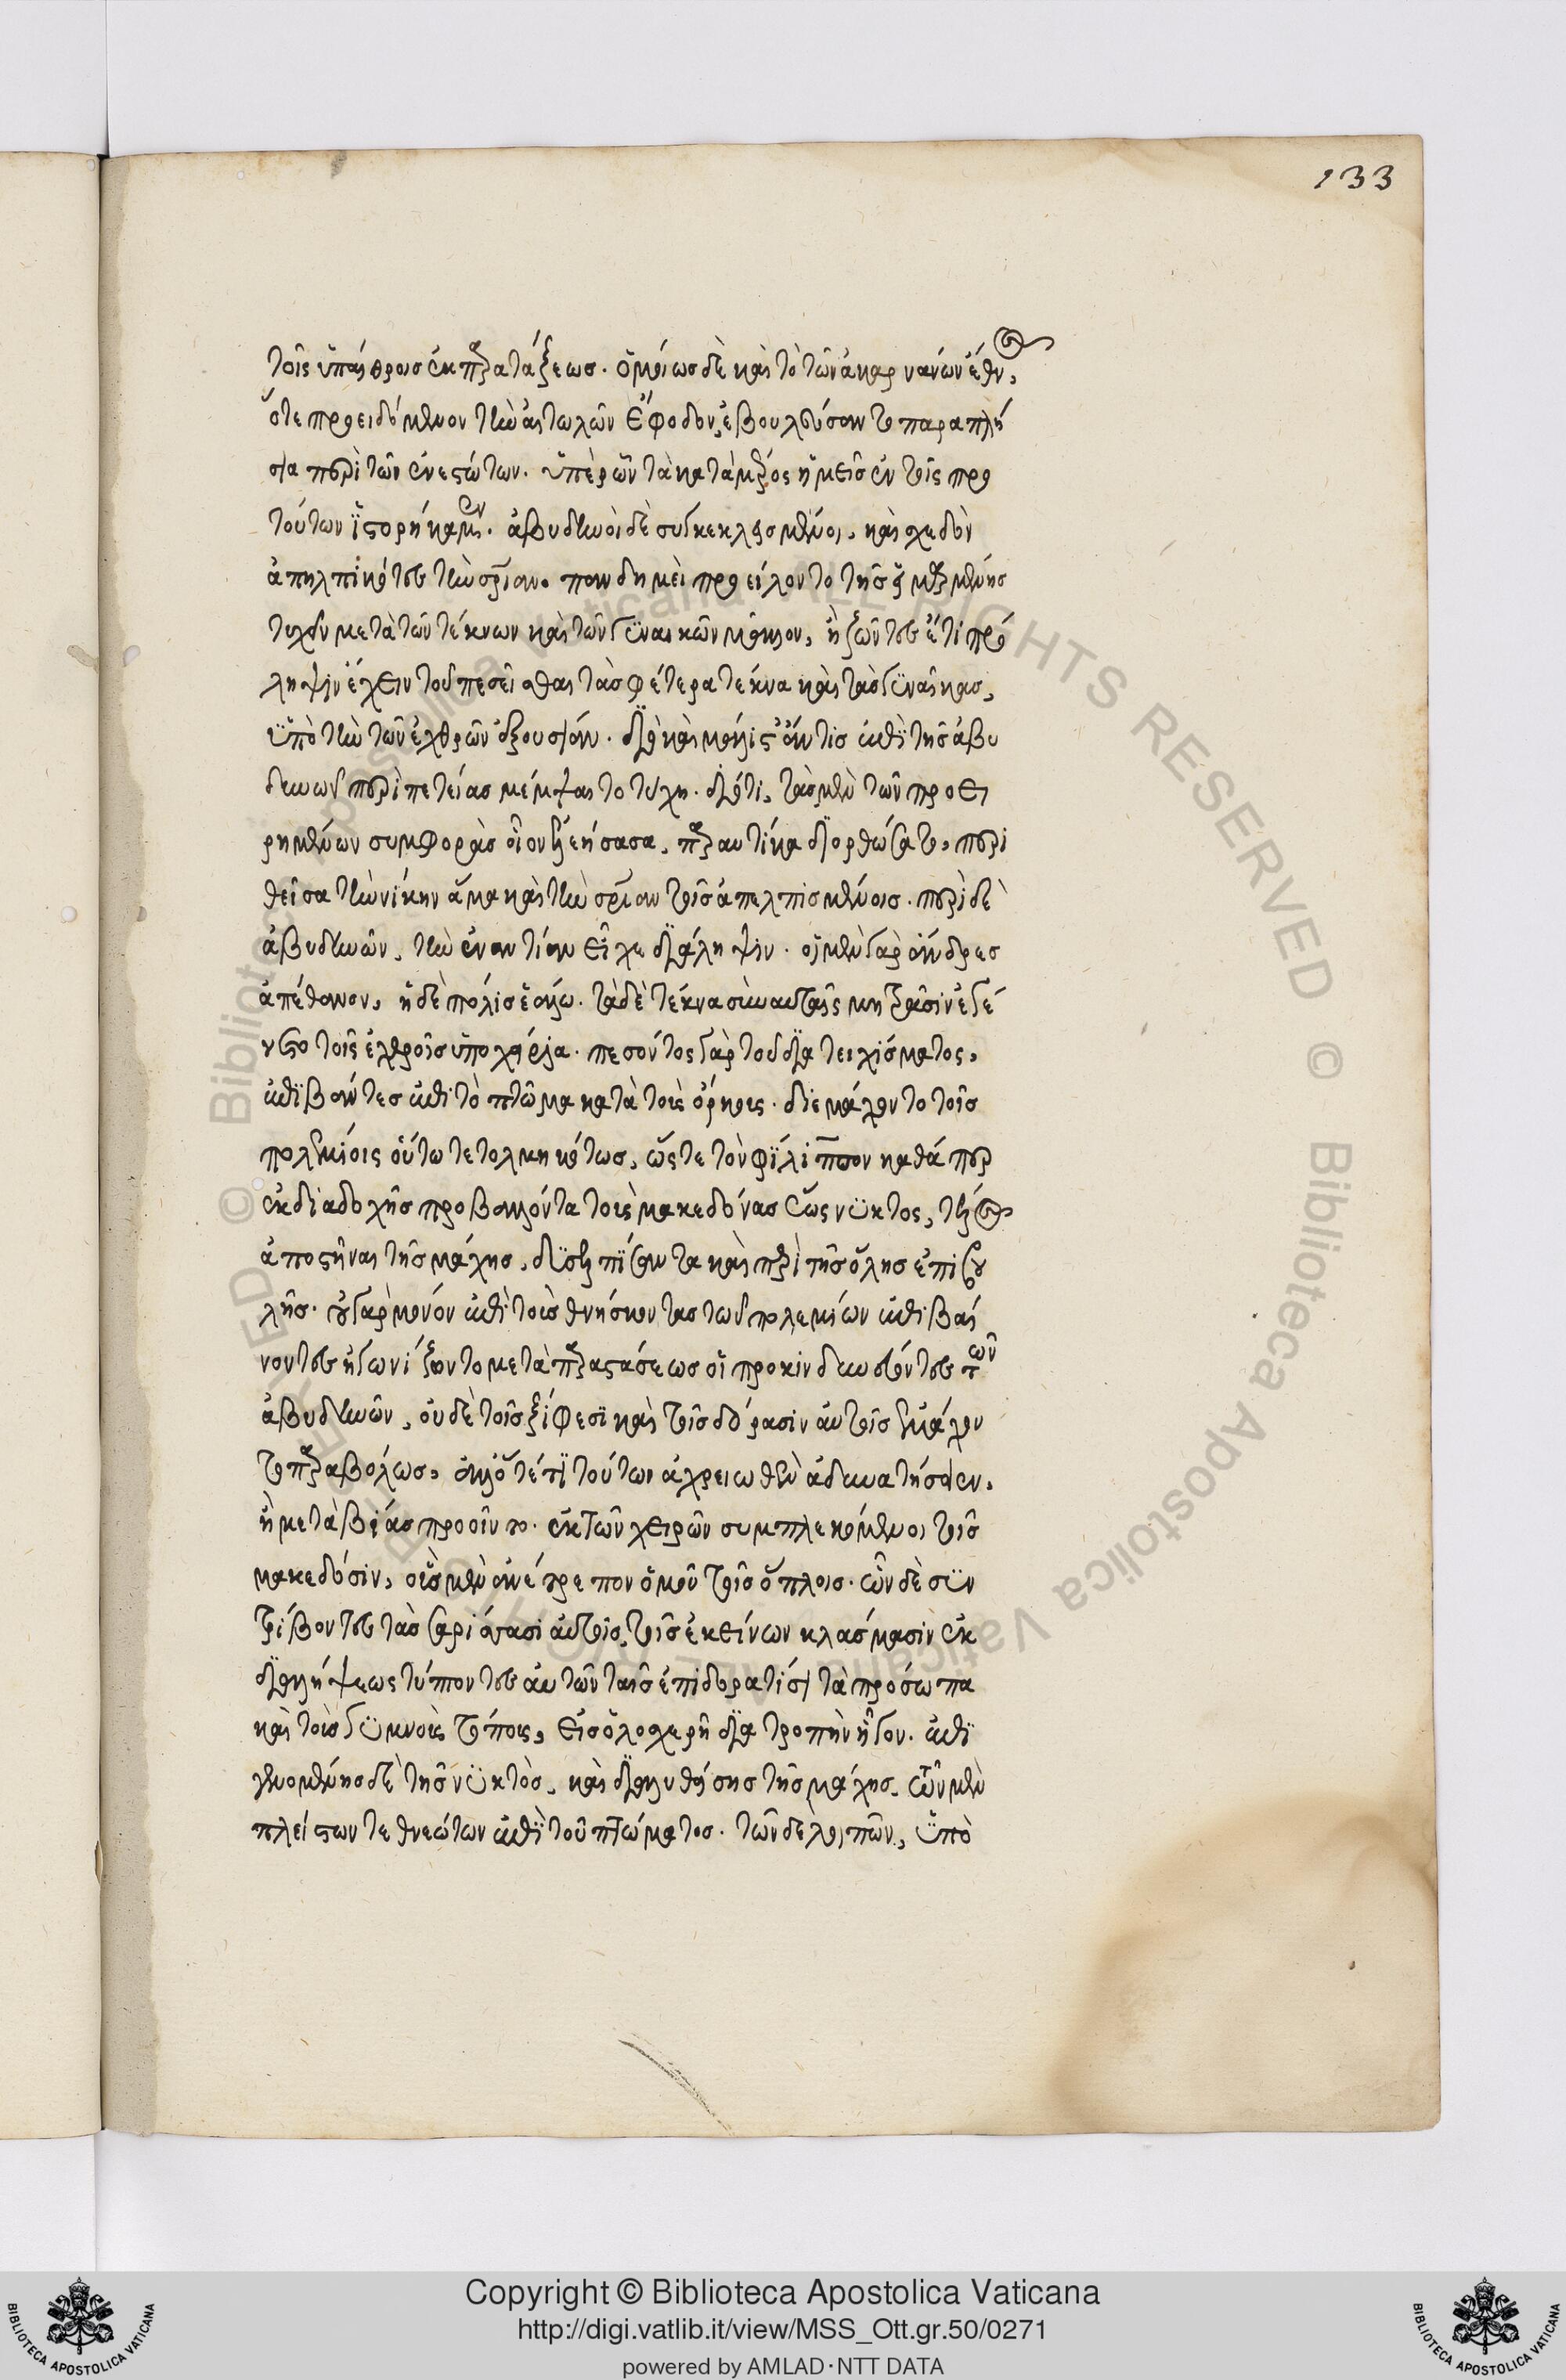 133
τοῖς ὑπαίθροισ ἐκπαρατάξεωσ. ὁμοίωσ δὲ καὶ τὸ τῶν ἀκαρνανῶν ἔθν,
ὅτε προειδόμενον τὴν αἰτωλῶν ἔφοδον, ἐβουλεύσαντο παραπλή
σια περὶ τῶν ἐνεστώτων. ὑπὲρ ὧν τὰ κατὰ μέρος ἡμεῖσ ἐν τοῖς προ
τούτων ἱστορήκαμεν. ἀβυδηνοὶ δὲ συγκεκλεισμένοι, καὶ σχεδὸν
ἀπηλπικότες τὴν σωτηρίαν. πανδημεὶ προείλοντο τῆσ εἱμαρμένησ
τυχεῖν μετὰ τῶν τέκνων καὶ τῶν γυναικῶν μᾶλλον, ἢ ζῶντες ἔτι πρό
ληψιν ἔχειν τοῦ πεσεῖσθαι τὰ σφέτερα τέκνα καὶ τὰσ γυναῖκασ,
ὑπὸ τὴν τῶν ἐχθρῶν ἐξουσίαν. διὸ καὶ μάλιστ' ἄν τισ ἐπὶ τῆσ ἀβυ
δηνῶν περιπετείασ μέμψαιτο τύχη. διότι, τὰσ μὲν τῶν προει
ρημένων συμφορὰσ οἷον ἐλεήσασα, παραυτίκα διορθώσατο, περι
θεῖσα τὴν νίκην ἅμα καὶ τὴν σωτηρίαν τοῖσ ἀπελπισμένοισ. περὶ δὲ
ἀβυδηνῶν, τὴν ἐναντίαν εἶχε διάληψιν. οἱ μὲν γὰρ ἄνδρεσ
ἀπέθανον, ἡ δὲ πόλισ ἑάλω. τὰ δὲ τέκνα σὺν αὐταῖς μητράσιν ἐγέ
νετο τοῖς ἐχθροῖσ ὑποχείρια. πεσόντος γὰρ τοῦ διατειχίσματος,
ἐπιβάντεσ ἐπὶ τὸ πτῶμα κατὰ τοὺς ὅρκους. διεμάχοντο τοῖσ
πολεμίοις οὕτω τετολμηκότωσ, ὥστε τὸν φίλιππον καθάπερ
ἐκ διαδοχῆσ προβαλόντα τοὺς μακεδόνασ ἕως νυκτος, τέλος
ἀποστῆναι τῆσ μάχησ, δυσελπίσαντα καὶ περὶ τῆσ ὅλησ ἐπιβου
λῆσ. οὐ γὰρ μονόν ἐπὶ τοὺσ θνήσκοντασ τῶν πολεμίων ἐπιβαί
νοντες ἠγωνίζοντο μετὰ παραστάσεωσ οἱ προκινδυνεύοντες τῶν
ἀβυδηνῶν, οὐδὲ τοῖσ ξίφεσι καὶ τοῖσ δόρασιν αὐτοῖσ ἐμάχον
το παραβόλωσ, ἀλλ' ὅτέ τι τούτων ἀχρειωθὲν ἀδυνατήσειεν,
ἢ μετὰ βίασ προοῖντο. ἐκ τῶν χειρῶν συμπλεκόμενοι τοῖσ
μακεδόσιν, οὓσ μὲν ἀνέτρεπον ὁμοῦ τοῖσ ὅπλοισ. ὧν δὲ συν
τρίβοντες τὰσ σαρίσασι αὐτοῖσ τοῖσ ἐκείνων κλασμασιν ἐκ
διαλήψεως τύπτοντες αὐτῶν ταῖσ ἐπιδορατίσι τὰ πρόσωπα
καὶ τοὺσ γυμνοὺς τόπους, εἰσ ὁλοσχερῆ διατροπὴν ἦγον. ἐπι
γενομένησ δὲ τῆσ νυκτὸσ, καὶ διαλυθείσησ τῆσ μάχησ. τῶν μὲν
πλείστων τεθνεώτων ἐπὶ τοῦ πτώματοσ. τῶν δὲ λοιπῶν, ὑπὸ
Copyright © Biblioteca Apostolica Vaticana
http://digi.vatlib.it/view/MSS_Ott.gr.50/0271
powered by AMLAD·NTT DATA
BIBLIOTECA APOSTOLICA VATICANA
BIBLIOTECA APOSTOLICA VATICANA